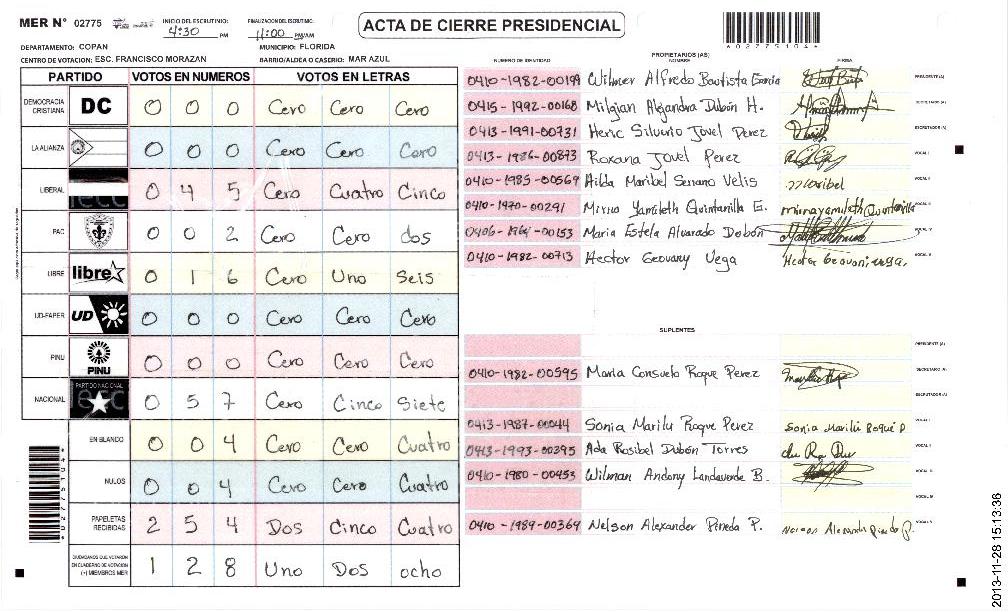 MER N° 02775
INICIO DEL ESCRUTINIO:
4:30 PM
FINALIZACION DEL ESCRUTINIO:
11:00 PM/AM
ACTA DE CIERRE PRESIDENCIAL
DEPARTAMENTO: COPAN
MUNICIPIO: FLORIDA
CENTRO DE VOTACION: ESC. FRANCISCO MORAZAN
BARRIO/ALDEA O CASERIO: MAR AZUL
PARTIDO VOTOS EN NUMEROS VOTOS EN LETRAS
DEMOCRACIA CRISTIANA DC 0 0 0 Cero Cero Cero
LA ALIANZA 0 0 0 Cero Cero Cero
LIBERAL 0 4 5 Cero Cuatro Cinco
PAC 0 0 2 Cero Cero dos
LIBRE libre 0 1 6 Cero Uno Seis
UD-FAPER UD 0 0 0 Cero Cero Cero
PINU PINU 0 0 0 Cero Cero Cero
NACIONAL PARTIDO NACIONAL 0 5 7 Cero Cinco Siete
EN BLANCO 0 0 4 Cero Cero Cuatro
NULOS 0 0 4 Cero Cero Cuatro
PAPELETAS RECIBIDAS 2 5 4 Dos Cinco Cuatro
CIUDADANOS QUE VOTARON EN CUADERNO DE VOTACION (+) MIEMBROS MER 1 2 8 Uno Dos ocho
PROPIETARIOS (AS)
NUMERO DE IDENTIDAD NOMBRE FIRMA
0410-1982-00199 Wilmer Alfredo Bautista Garcia PRESIDENTE (A)
0415-1992-00168 Milgian Alejandra Dubón H. SECRETARIO (A)
0413-1991-00731 Heric Silverio Jovel Perez ESCRUTADOR (A)
0413-1986-00873 Roxana Jovel Perez VOCAL I
0410-1985-00569 Hilda Maribel Serrano Velis Maribel VOCAL II
0410-1970-00291 Mirna Yamileth Quintanilla E. mirnayamileth Quintanilla
0406-1961-00153 Maria Estela Alvarado Dubón
0410-1982-00713 Hector Geovany Vega Hector Geovani vega.
SUPLENTES
PRESIDENTE (A)
0410-1982-00595 Maria Consuelo Roque Perez SECRETARIO (A)
ESCRUTADOR (A)
0413-1987-00044 Sonia Marilu Roque Perez Sonia Marilú Roque P VOCAL I
0413-1993-00395 Ada Rosibel Dubón Torres VOCAL II
0410-1980-00453 Wilman Andony Landaverde B.
0410-1989-00369 Nelson Alexander Pineda P. Nelson Alexander Pineda P.
2013-11-28 15:13:36